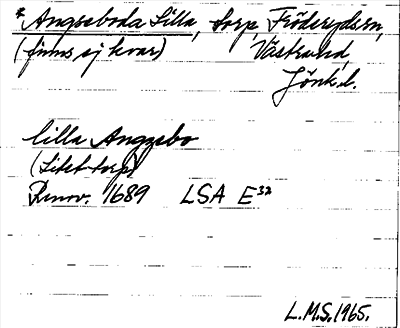 *Angsaboda Lilla, torp, Fröderyds sn,
(finns ej kvar) Västra hd,
Jönk. l.
lilla Angzabo
(Litet torp)
Renov. 1689 LSA E³²
L.M.S. 1965.